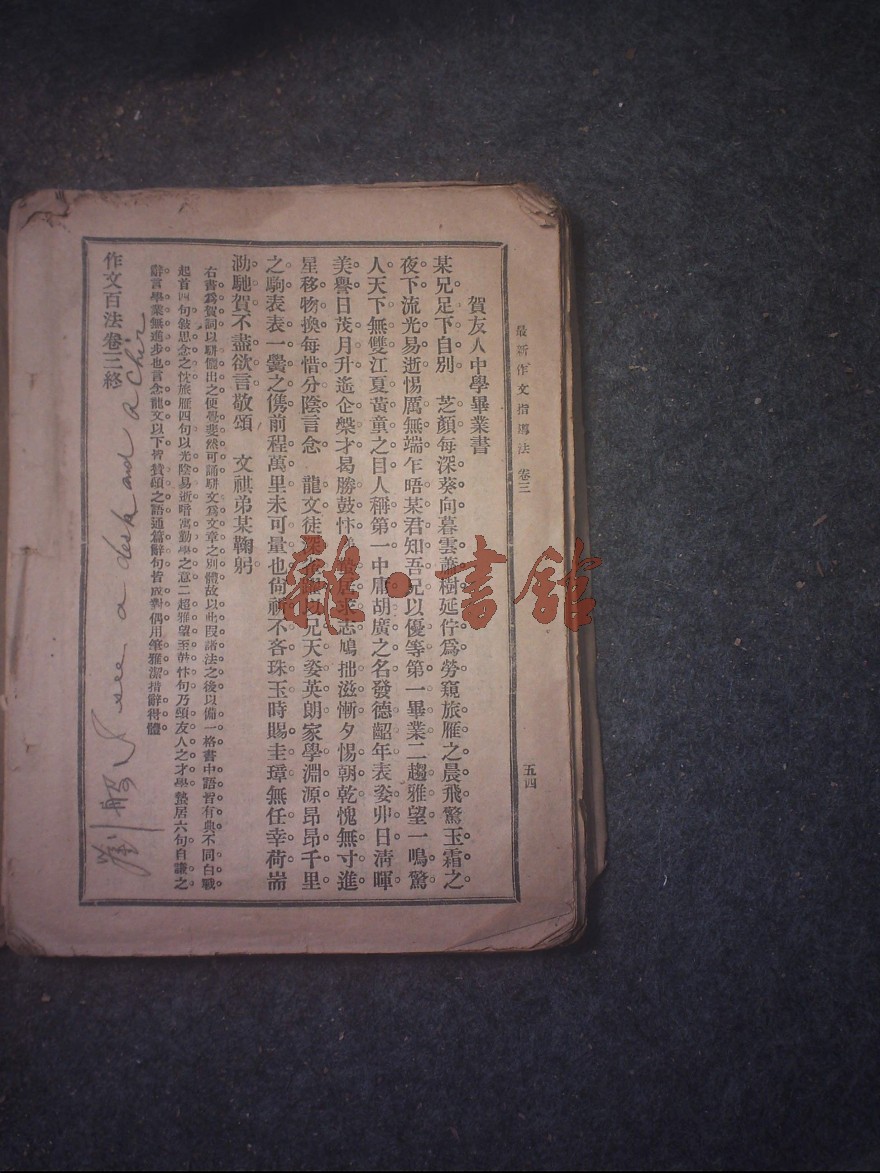 最新作文指導法 卷三
五四
賀友人中學畢業書
某兄足下。自別 芝顏。每深葵向。暮雲蕭樹。延佇爲勞。窺旅雁之晨飛。驚玉霜之
夜下。流光易逝。惕厲無端。乍晤某君。知吾兄以優等第一畢業。二趨雅望。一鳴驚
人。天下無雙。江夏黃童之目。人稱第一。中庸胡廣之名。發德韶年。表姿丱日。清暉
美譽。日茂月升。遙企槃才。曷勝鼓忭。居求志。鳩拙滋慚。夕惕朝乾。愧無寸進。
星移物換。每惜分陰。言念 龍文。徒深 以兄天姿英朗。家學淵源。昂昂千里
之駒。表表一黌之儁。前程萬里。未可量也。尙祈不吝珠玉。時賜圭璋。無任幸荷。耑
泐馳賀。不盡欲言。敬頌 文祺。弟某鞠躬。
右書爲賀詞。以駢儷出之。便覺斐然可誦。駢文爲文章之別體。故以此段諸法之後。以備一格。書中語皆有典。不同白戰。
起首四句。敍思念之忱。旅雁四句。以光陰易逝。暗寓勤學之意。二超雅望至鼓忭句。乃頌友人之才學。蟄居六句。自謙之
辭。言學業無進步也。言念龍文以下。皆贊頌之語。通篇辭句。皆成對偶。用筆雅潔。措辭得體。
作文百法卷三終
I see a desk and a chir
雜·書館